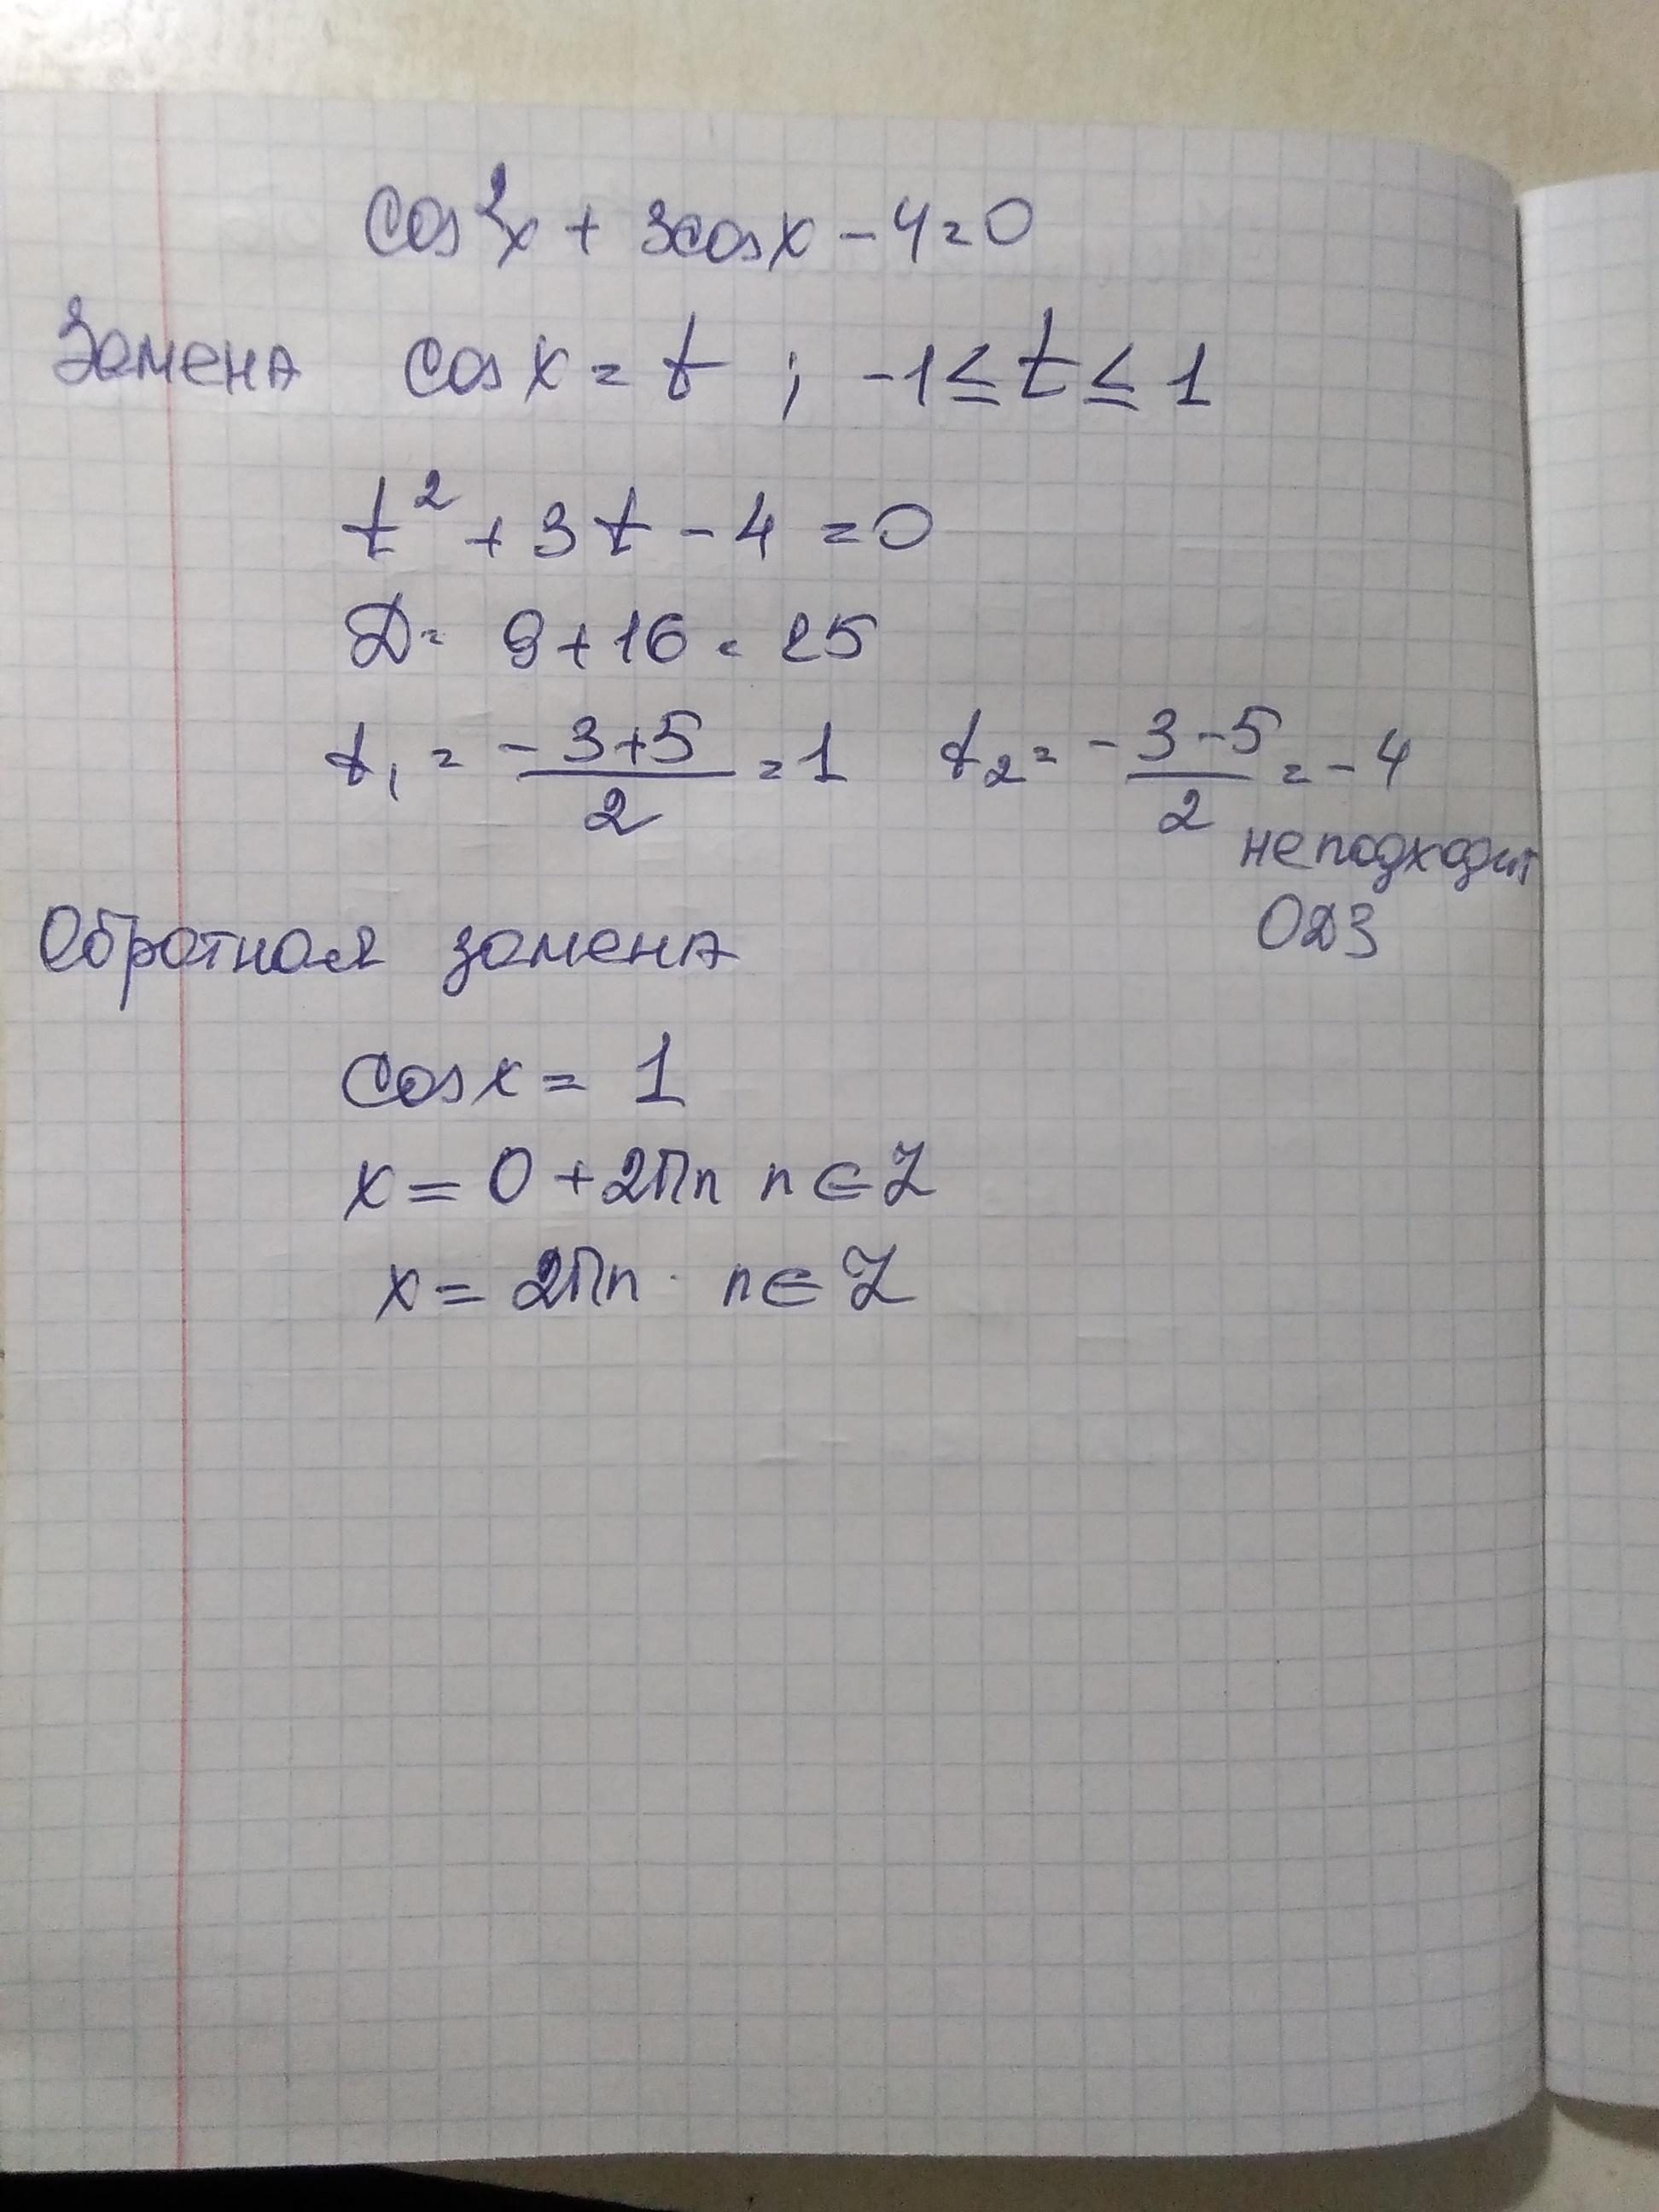 cos²x + 3cosx - 4 = 0
Замена cosx = t ; -1 ≤ t ≤ 1
t² + 3t - 4 = 0
D = 9 + 16 = 25
t₁ = (-3+5)/2 = 1 t₂ = (-3-5)/2 = -4
не подходит
ОДЗ
Обратная замена
cosx = 1
x = 0 + 2πn n ∈ Z
x = 2πn n ∈ Z